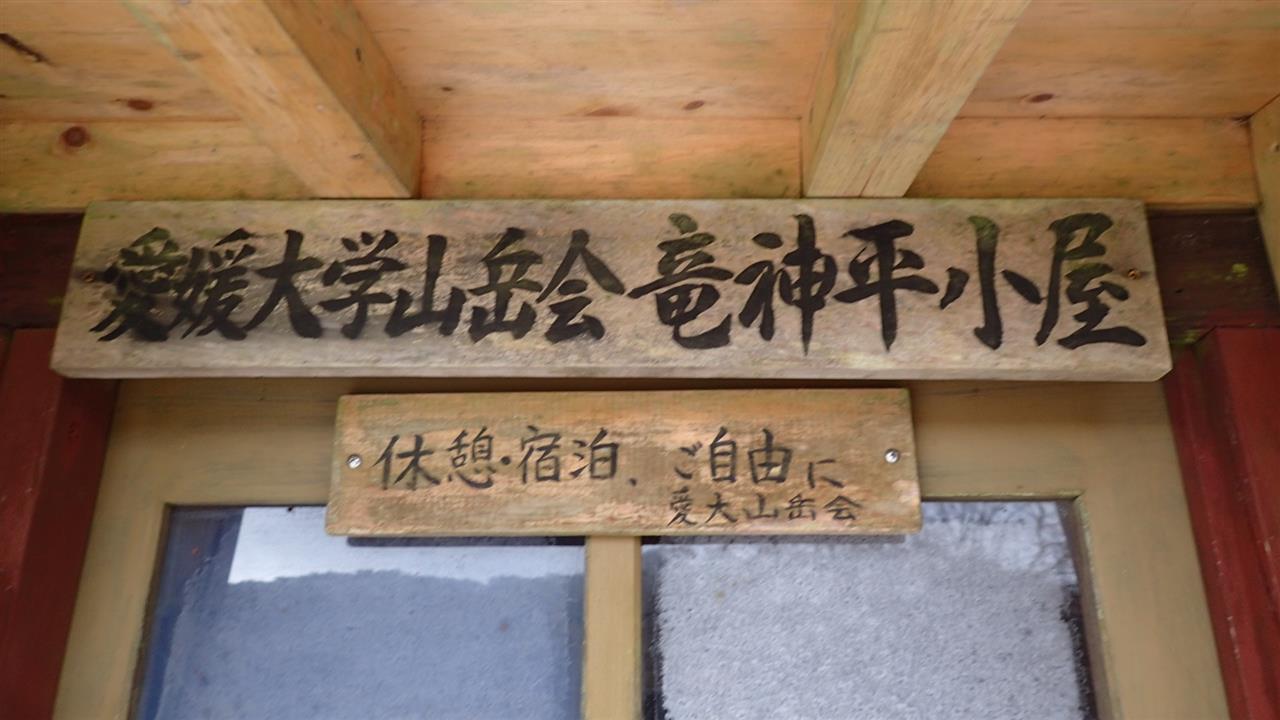 愛媛大学山岳会 竜神平小屋
休憩・宿泊、ご自由に
愛大山岳会